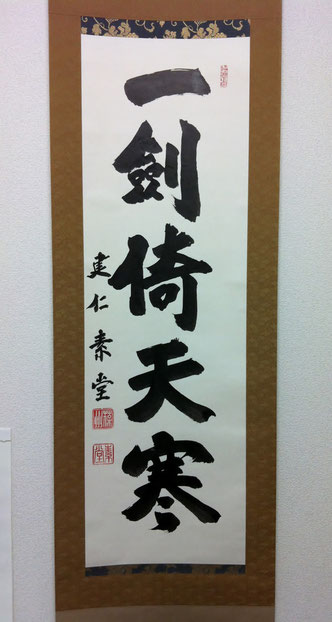 一劍倚天寒
建仁素堂